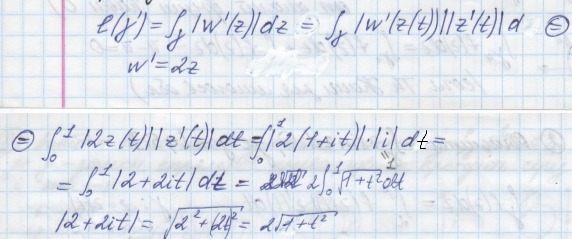 l(γ') = ∫_γ |w'(z)| dz = ∫_γ |w'(z(t))||z'(t)| d ⊜
w' = 2z
⊜ ∫₀¹ |2z(t)||z'(t)| dt = ∫₀¹ |2(1+it)|·|i| dt =
= ∫₀¹ |2+2it| dt = 2∫₀¹ √(1+t²) dt
|2+2it| = √(2²+(2t)²) = 2√(1+t²)